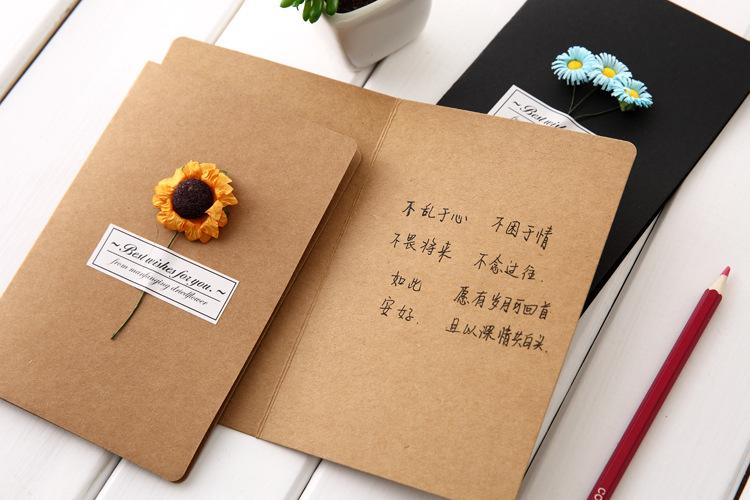 ~Best wishes for you.~
from manfengting driedflower
不乱于心 不困于情
不畏将来 不念过往.
如此 愿有岁月可回首
安好. 且以深情共白头.
Best wish
CO